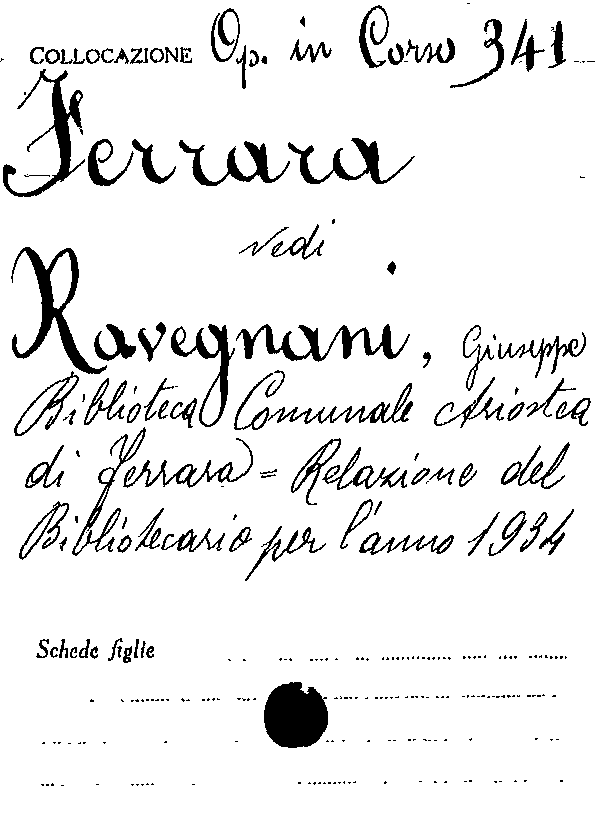 COLLOCAZIONE Op. in Corso 341
Ferrara
vedi
Ravegnani, Giuseppe
Biblioteca Comunale Ariostea
di Ferrara = Relazione del
Bibliotecario per l'anno 1934
Schede figlie